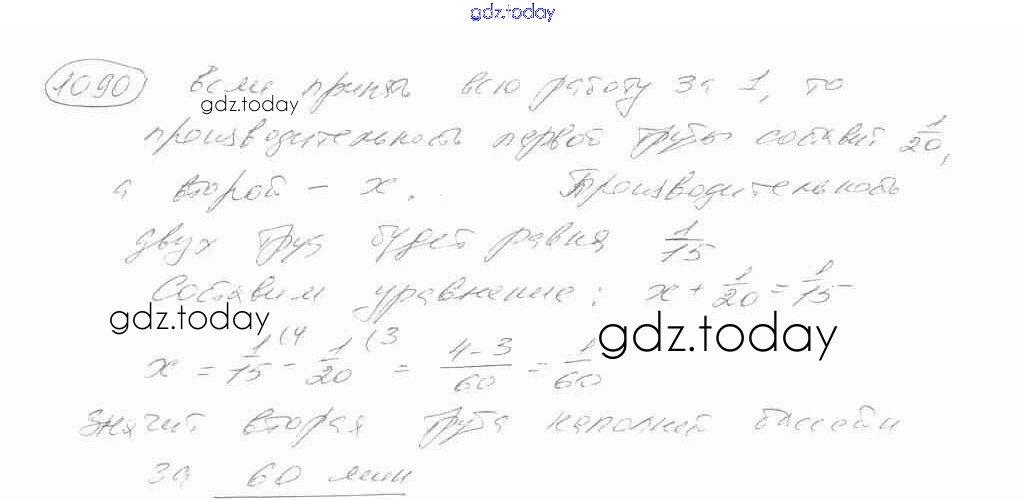 gdz.today
1090 Если принять всю работу за 1, то
gdz.today
производительность первой трубы составит 1/20,
а второй – x. Производительность
двух труб будет равна 1/15
Составим уравнение: x + 1/20 = 1/15
gdz.today
gdz.today
x = 1/15 (4 – 1/20 (3 = 4-3/60 = 1/60
Значит вторая труба наполнит бассейн
за 60 мин